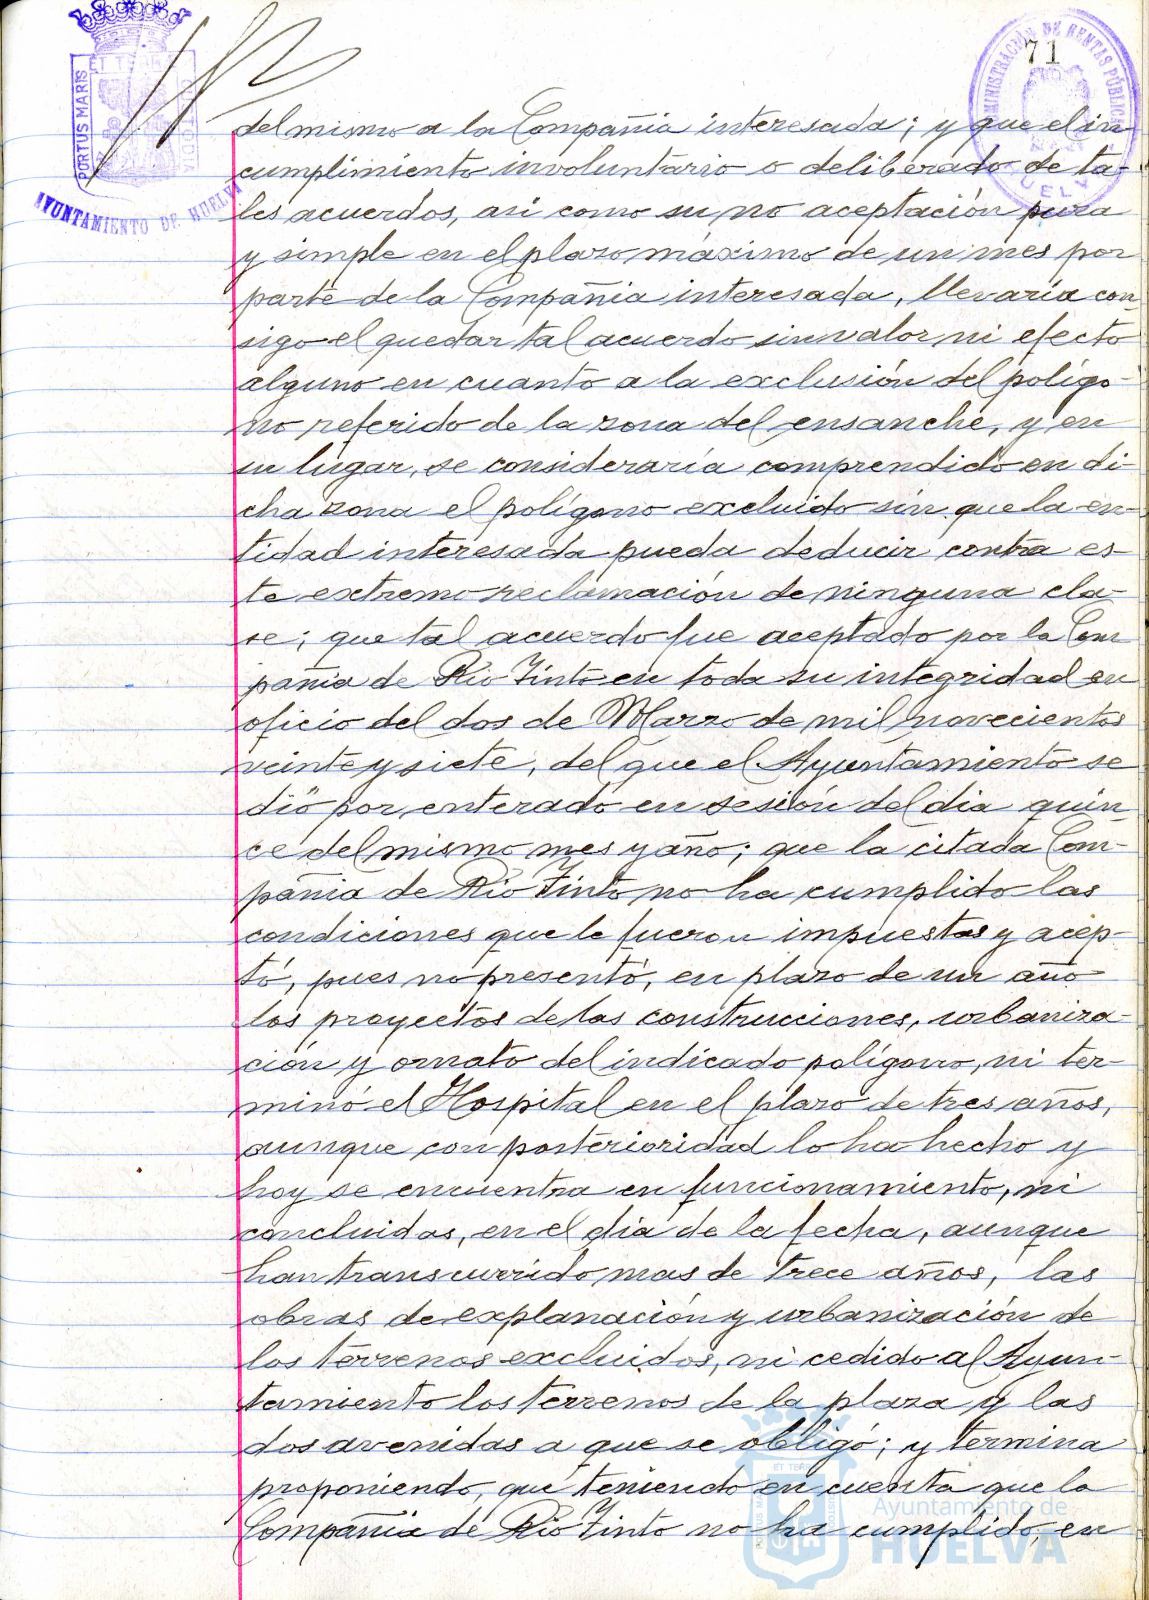 71
PORTUS MARIS
ET TERRAE
CUSTODIA
AYUNTAMIENTO DE HUELVA
ADMINISTRACIÓN DE RENTAS PÚBLICAS
HUELVA
del mismo a la Compañia interesada; y que el in-
cumplimiento involuntario o deliberado de ta-
les acuerdos, asi como su no aceptación pura
y simple en el plazo máximo de un mes por
parte de la Compañia interesada, llevaría con
sigo el quedar tal acuerdo sin valor ni efecto
alguno en cuanto a la exclusión del polígo-
no referido de la zona del ensanche, y en
su lugar, se consideraría comprendido en di-
cha zona el polígono excluido sin que la en-
tidad interesada pueda deducir contra es-
te extremo reclamación de ninguna cla-
se; que tal acuerdo fue aceptado por la Com
pañia de Rio Tinto en toda su integridad en
oficio del dos de Marzo de mil novecientos
veinte y siete, del que el Ayuntamiento se
dió por enterado en sesión del dia quin-
ce del mismo mes y año; que la citada Com-
pañia de Rio Tinto no ha cumplido las
condiciones que le fueron impuestas y acep-
tó, pues no presentó, en plazo de un año
los proyectos de las construcciones, urbaniza-
ción y ornato del indicado polígono, ni ter-
minó el Hospital en el plazo de tres años,
aunque con posterioridad lo ha hecho y
hoy se encuentra en funcionamiento, ni
concluidas, en el día de la fecha, aunque
han transcurrido mas de trece años, las
obras de explanación y urbanización de
los terrenos excluidos, ni cedido al Ayun-
tamiento los terrenos de la plaza y las
dos avenidas a que se obligó; y termina
proponiendo, que teniendo en cuenta que la
Compañia de Rio Tinto no ha cumplido, en
Ayuntamiento de
HUELVA